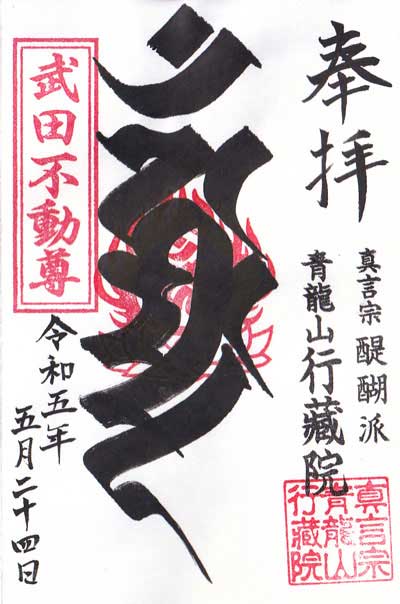 奉拝
真言宗 醍醐派
青龍山行藏院
真言宗
青龍山
行藏院
武田不動尊
令和五年
五月二十四日